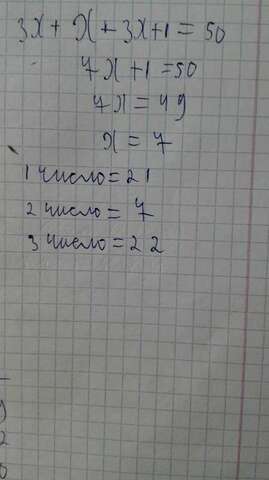 3x + x + 3x+1 = 50
7x+1=50
7x=49
x = 7
1 число=21
2 число= 7
3 число=22
9
2
0